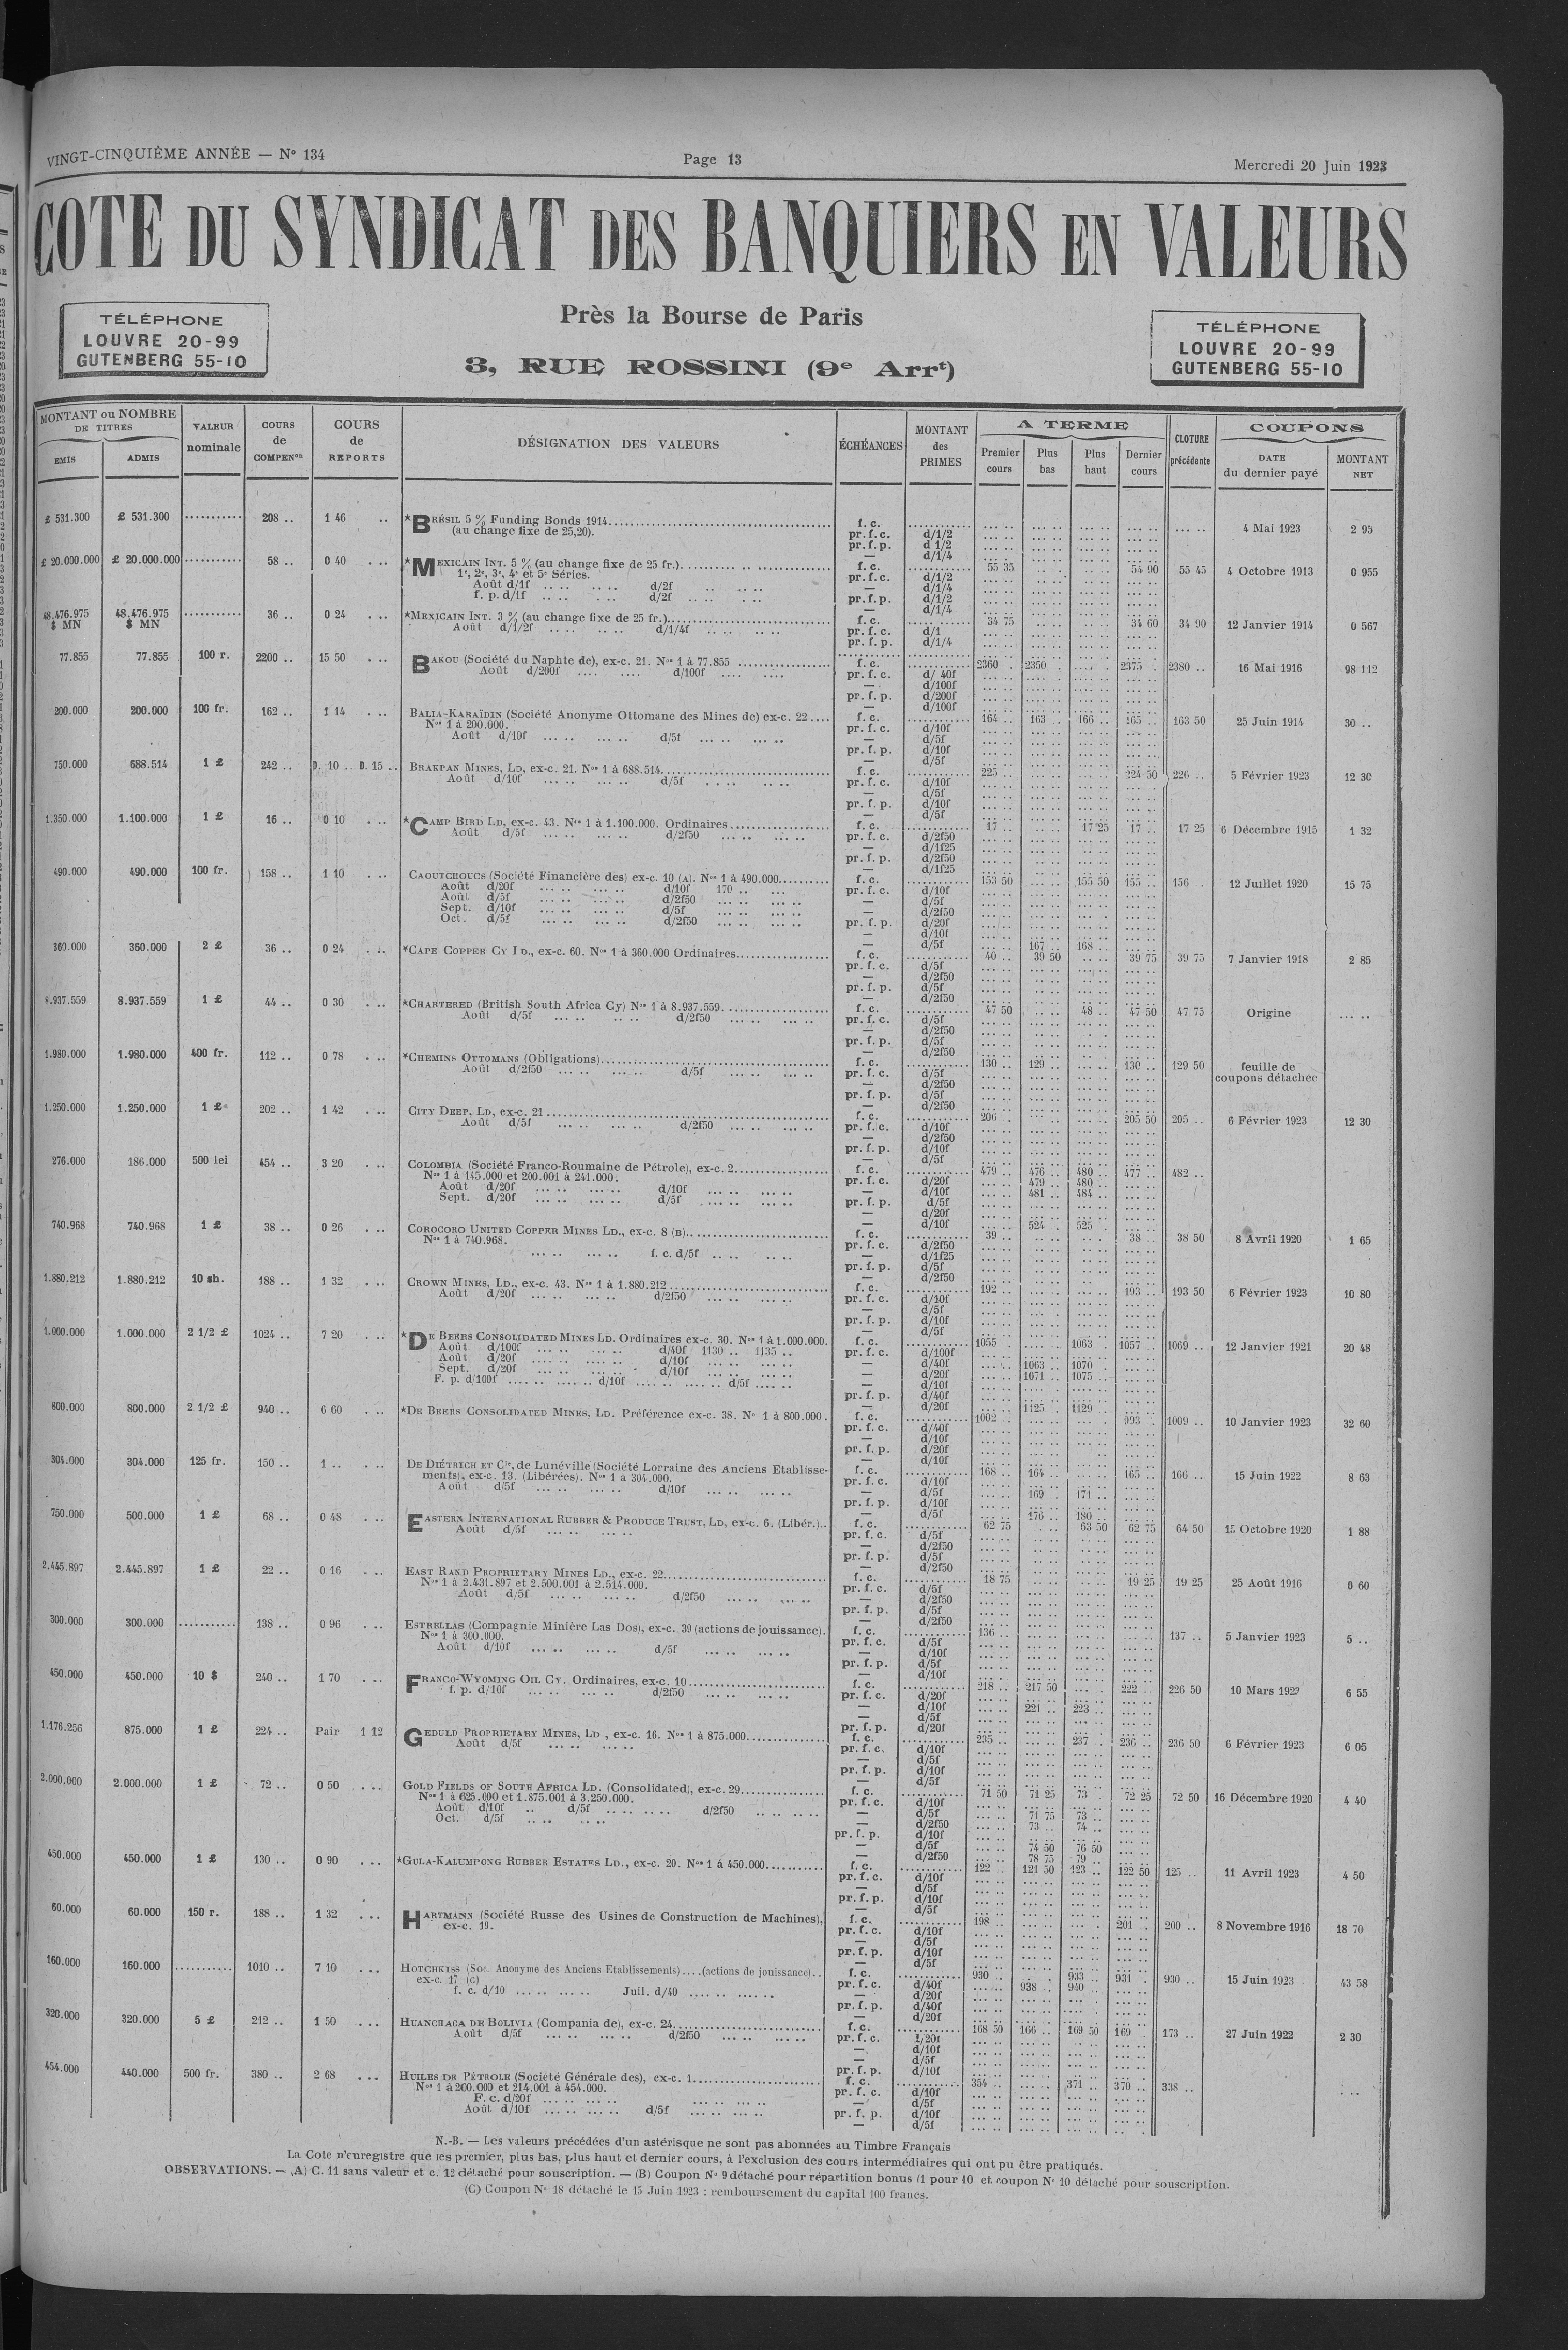 VINGT-CINQUIÈME ANNÉE — N° 134
Page 13
Mercredi 20 Juin 1923
COTE DU SYNDICAT DES BANQUIERS EN VALEURS
TÉLÉPHONE
LOUVRE 20-99
GUTENBERG 55-10
Près la Bourse de Paris
3, RUE ROSSINI (9e Arrt)
TÉLÉPHONE
LOUVRE 20-99
GUTENBERG 55-10
MONTANT ou NOMBRE DE TITRES
EMIS
ADMIS
VALEUR nominale
COURS de COMPENon
COURS de REPORTS
DÉSIGNATION DES VALEURS
ÉCHÉANCES
MONTANT des PRIMES
A TERME
Premier cours
Plus bas
Plus haut
Dernier cours
CLOTURE précédente
COUPONS
DATE du dernier payé
MONTANT NET
£ 531.300 £ 531.300 208 .. 1 46 .. *BRÉSIL 5 % Funding Bonds 1914 f. c. 4 Mai 1923 2 95
(au change fixe de 25,20). pr. f. c. d/1/2
pr. f. p. d 1/2
— d/1/4
£ 20.000.000 £ 20.000.000 58 .. 0 40 *MEXICAIN INT. 5 % (au change fixe de 25 fr.) f. c. 55 35 54 90 55 45 4 Octobre 1913 0 955
1e, 2e, 3e, 4e et 5e Séries. pr. f. c. d/1/2
Août d/1f d/2f — d/1/4
f. p. d/1f d/2f pr. f. p. d/1/2
— d/1/4
48.476.975 $ MN 48.476.975 $ MN 36 .. 0 24 *MEXICAIN INT. 3 % (au change fixe de 25 fr.) f. c. 34 75 34 60 34 90 12 Janvier 1914 0 567
Août d/1/2f d/1/4f pr. f. c. d/1
pr. f. p. d/1/4
77.855 77.855 100 r. 2200 .. 15 50 BAKOU (Société du Naphte de), ex-c. 21. Nos 1 à 77.855 f. c. 2360 2350 2375 2380 .. 16 Mai 1916 98 112
Août d/200f d/100f pr. f. c. d/ 40f
— d/100f
pr. f. p. d/200f
— d/100f
200.000 200.000 100 fr. 162 .. 1 14 BALIA-KARAÏDIN (Société Anonyme Ottomane des Mines de) ex-c. 22 f. c. 164 .. 163 .. 166 .. 165 .. 163 50 25 Juin 1914 30 ..
Nos 1 à 200.000. pr. f. c. d/10f
Août d/10f d/5f — d/5f
pr. f. p. d/10f
— d/5f
750.000 688.514 1 £ 242 .. D. 10 .. D. 15 .. BRAKPAN MINES, LD, ex-c. 21. Nos 1 à 688.514 f. c. 225 224 50 226 .. 5 Février 1923 12 30
Août d/10f d/5f pr. f. c. d/10f
— d/5f
pr. f. p. d/10f
— d/5f
1.350.000 1.100.000 1 £ 16 .. 0 10 *CAMP BIRD LD, ex-c. 43. Nos 1 à 1.100.000. Ordinaires f. c. 17 .. 17 25 17 .. 17 25 6 Décembre 1915 1 32
Août d/5f d/2f50 pr. f. c. d/2f50
— d/1f25
pr. f. p. d/2f50
— d/1f25
490.000 490.000 100 fr. 158 .. 1 10 CAOUTCHOUCS (Société Financière des) ex-c. 10 (A). Nos 1 à 490.000 f. c. 153 50 155 50 155 .. 156 12 Juillet 1920 15 75
Août d/20f d/10f 170 .. pr. f. c. d/10f
Août d/5f d/2f50 — d/5f
Sept. d/10f d/5f — d/2f50
Oct. d/5f d/2f50 pr. f. p. d/20f
— d/10f
— d/5f 167 .. 168 ..
360.000 360.000 2 £ 36 .. 0 24 *CAPE COPPER CY LD., ex-c. 60. Nos 1 à 360.000 Ordinaires f. c. 40 .. 39 50 39 75 39 75 7 Janvier 1918 2 85
pr. f. c. d/5f
— d/2f50
pr. f. p. d/5f
— d/2f50
8.937.559 8.937.559 1 £ 44 .. 0 30 *CHARTERED (British South Africa Cy) Nos 1 à 8.937.559 f. c. 47 50 48 .. 47 50 47 75 Origine
Août d/5f d/2f50 pr. f. c. d/5f
— d/2f50
pr. f. p. d/5f
— d/2f50
1.980.000 1.980.000 400 fr. 112 .. 0 78 *CHEMINS OTTOMANS (Obligations) f. c. 130 .. 129 .. 130 .. 129 50 feuille de coupons détachée
Août d/2f50 d/5f pr. f. c. d/5f
— d/2f50
pr. f. p. d/5f
— d/2f50
1.250.000 1.250.000 1 £ 202 .. 1 42 CITY DEEP, LD, ex-c. 21 f. c. 206 205 50 205 .. 6 Février 1923 12 30
Août d/5f d/2f50 pr. f. c. d/10f
— d/2f50
pr. f. p. d/10f
— d/5f
276.000 186.000 500 lei 454 .. 3 20 COLOMBIA (Société Franco-Roumaine de Pétrole), ex-c. 2 f. c. 479 .. 476 .. 480 .. 477 .. 482 ..
Nos 1 à 145.000 et 200.001 à 241.000. pr. f. c. d/20f 479 .. 480 ..
Août d/20f d/10f — d/10f 481 .. 484 ..
Sept. d/20f d/5f pr. f. p. d/5f
— d/20f
— d/10f 524 .. 525 ..
740.968 740.968 1 £ 38 .. 0 26 COROCORO UNITED COPPER MINES LD., ex-c. 8 (B) f. c. 39 .. 38 .. 38 50 8 Avril 1920 1 65
Nos 1 à 740.968. pr. f. c. d/2f50
f. c. d/5f — d/1f25
pr. f. p. d/5f
— d/2f50
1.880.212 1.880.212 10 sh. 188 .. 1 32 CROWN MINES, LD., ex-c. 43. Nos 1 à 1.880.212 f. c. 192 .. 193 .. 193 50 6 Février 1923 10 80
Août d/20f d/2f50 pr. f. c. d/10f
— d/5f
pr. f. p. d/10f
— d/5f
1.000.000 1.000.000 2 1/2 £ 1024 .. 7 20 *DE BEERS CONSOLIDATED MINES LD. Ordinaires ex-c. 30. Nos 1 à 1.000.000. f. c. 1055 1063 1057 .. 1069 .. 12 Janvier 1921 20 48
Août d/100f d/40f 1130 .. 1135 .. pr. f. c. d/100f
Août d/20f d/10f — d/40f 1063 .. 1070 ..
Sept. d/20f d/10f — d/20f 1071 .. 1075 ..
F. p. d/100f d/10f d/5f — d/10f
pr. f. p. d/40f
— d/20f 1125 .. 1129 ..
800.000 800.000 2 1/2 £ 940 .. 6 60 *DE BEERS CONSOLIDATED MINES, LD. Préférence ex-c. 38. No 1 à 800.000. f. c. 1002 .. 993 1009 .. 10 Janvier 1923 32 60
pr. f. c. d/40f
— d/10f
pr. f. p. d/20f
— d/10f
304.000 304.000 125 fr. 150 .. 1 .. DE DIÉTRICH ET Cie, de Lunéville (Société Lorraine des Anciens Etablisse- f. c. 168 .. 164 .. 165 .. 166 .. 15 Juin 1922 8 63
ments), ex-c. 13. (Libérées). Nos 1 à 304.000. pr. f. c. d/10f
Août d/5f d/10f — d/5f 169 .. 171 ..
pr. f. p. d/10f
— d/5f 176 .. 180 ..
750.000 500.000 1 £ 68 .. 0 48 EASTERN INTERNATIONAL RUBBER & PRODUCE TRUST, LD, ex-c. 6. (Libér.) f. c. 62 75 63 50 62 75 64 50 15 Octobre 1920 1 88
Août d/5f pr. f. c. d/5f
— d/2f50
pr. f. p. d/5f
— d/2f50
2.445.897 2.445.897 1 £ 22 .. 0 16 EAST RAND PROPRIETARY MINES LD., ex-c. 22 f. c. 18 75 19 25 19 25 25 Août 1916 0 60
Nos 1 à 2.431.897 et 2.500.001 à 2.514.000. pr. f. c. d/5f
Août d/5f d/2f50 — d/2f50
pr. f. p. d/5f
— d/2f50
300.000 300.000 138 .. 0 96 ESTRELLAS (Compagnie Minière Las Dos), ex-c. 39 (actions de jouissance). f. c. 136 .. 137 .. 5 Janvier 1923 5 ..
Nos 1 à 300.000. pr. f. c. d/5f
Août d/10f d/5f — d/10f
pr. f. p. d/5f
— d/10f
450.000 450.000 10 $ 240 .. 1 70 FRANCO-WYOMING OIL CY. Ordinaires, ex-c. 10 f. c. 218 .. 217 50 222 .. 226 50 10 Mars 1922 6 55
f. p. d/10f d/2f50 pr. f. c. d/20f
— d/10f 221 .. 223 ..
— d/5f
pr. f. p. d/20f
1.176.256 875.000 1 £ 224 .. Pair 1 12 GEDULD PROPRIETARY MINES, LD, ex-c. 16. Nos 1 à 875.000 f. c. 235 .. 237 .. 236 .. 236 50 6 Février 1923 6 05
Août d/5f pr. f. c. d/10f
— d/5f
pr. f. p. d/10f
— d/5f
2.000.000 2.000.000 1 £ 72 .. 0 50 GOLD FIELDS OF SOUTH AFRICA LD. (Consolidated), ex-c. 29 f. c. 71 50 71 25 73 .. 72 25 72 50 16 Décembre 1920 4 40
Nos 1 à 625.000 et 1.875.001 à 3.250.000. pr. f. c. d/10f
Août d/10f d/5f d/2f50 — d/5f 71 75 73 ..
Oct. d/5f — d/2f50 73 .. 74 ..
pr. f. p. d/10f
— d/5f 74 50 76 50
— d/2f50 78 75 79 ..
450.000 450.000 1 £ 130 .. 0 90 *GULA-KALUMPONG RUBBER ESTATES LD., ex-c. 20. Nos 1 à 450.000 f. c. 122 .. 121 50 123 .. 122 50 125 .. 11 Avril 1923 4 50
pr. f. c. d/10f
— d/5f
pr. f. p. d/10f
— d/5f
60.000 60.000 150 r. 188 .. 1 32 HARTMANN (Société Russe des Usines de Construction de Machines), f. c. 198 .. 201 200 .. 8 Novembre 1916 18 70
ex-c. 19. pr. f. c. d/10f
— d/5f
pr. f. p. d/10f
— d/5f
160.000 160.000 1010 .. 7 10 HOTCHKISS (Soc. Anonyme des Anciens Etablissements) (actions de jouissance) f. c. 930 .. 933 .. 931 930 .. 15 Juin 1923 43 58
ex-c. 17 (C) pr. f. c. d/40f 938 .. 940 ..
f. c. d/10 Juil. d/40 — d/20f
pr. f. p. d/40f
— d/20f
320.000 320.000 5 £ 212 .. 1 50 HUANCHACA DE BOLIVIA (Compania de), ex-c. 24 f. c. 168 50 166 .. 169 50 169 173 .. 27 Juin 1922 2 30
Août d/5f d/2f50 pr. f. c. 1/20f
— d/10f
— d/5f
pr. f. p. d/10f
454.000 440.000 500 fr. 380 .. 2 68 HUILES DE PÉTROLE (Société Générale des), ex-c. 1 f. c. 354 371 370 .. 338 ..
Nos 1 à 200.000 et 214.001 à 454.000. pr. f. c. d/10f
F. c. d/20f — d/5f
Août d/10f d/5f pr. f. p. d/10f
— d/5f
N.-B. — Les valeurs précédées d'un astérisque ne sont pas abonnées au Timbre Français
La Cote n'enregistre que les premier, plus bas, plus haut et dernier cours, à l'exclusion des cours intermédiaires qui ont pu être pratiqués.
OBSERVATIONS. — (A) C. 11 sans valeur et c. 12 détaché pour souscription. — (B) Coupon No 9 détaché pour répartition bonus (1 pour 10 et coupon No 10 détaché pour souscription.
(C) Coupon No 18 détaché le 15 Juin 1923 : remboursement du capital 100 francs.